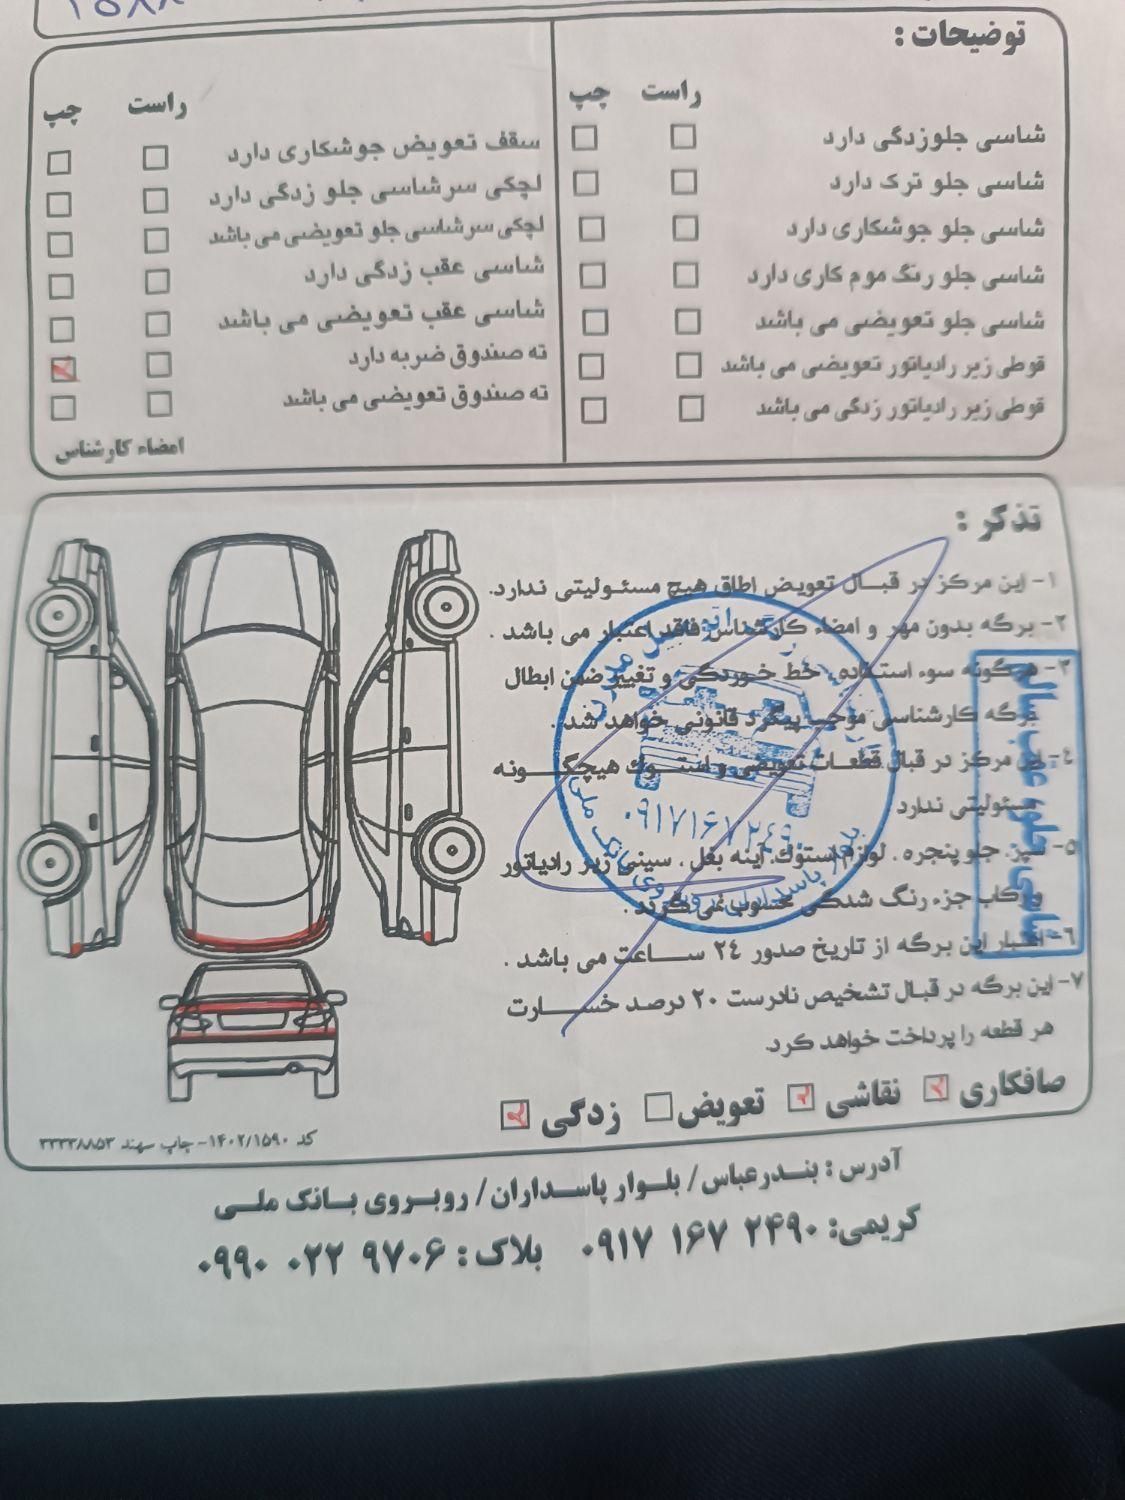 توضیحات :
راست چپ
شاسی جلوزدگی دارد
شاسی جلو ترک دارد
شاسی جلو جوشکاری دارد
شاسی جلو رنگ موم کاری دارد
شاسی جلو تعویضی می باشد
قوطی زیر رادیاتور تعویضی می باشد
قوطی زیر رادیاتور زدگی می باشد
راست چپ
سقف تعویض جوشکاری دارد
لچکی سرشاسی جلو زدگی دارد
لچکی سرشاسی جلو تعویضی می باشد
شاسی عقب زدگی دارد
شاسی عقب تعویضی می باشد
ته صندوق ضربه دارد
ته صندوق تعویضی می باشد
امضاء کارشناس
تذکر :
۱- این مرکز در قبال تعویض اطاق هیچ مسئولیتی ندارد.
۲- برگه بدون مهر و امضاء کارشناس فاقد اعتبار می باشد .
۳- هرگونه سوء استفاده، خط خوردگی و تغییر ضمن ابطال
برگه کارشناسی موجب پیگرد قانونی خواهد شد .
۴- این مرکز در قبال قطعات تعویضی و استوک هیچگونه
مسئولیتی ندارد
۵- سپر. جلو پنجره . لوازم استوک. آینه بغل . سینی زیر رادیاتور
و رکاب جزء رنگ شدگی محسوب نمی گردد .
۶- اعتبار این برگه از تاریخ صدور ۲۴ ساعت می باشد .
۷- این برگه در قبال تشخیص نادرست ۲۰ درصد خسارت
هر قطعه را پرداخت خواهد کرد.
شاسی جلو، عقب سالم
۰۹۱۷۱۶۷۲۴۹۰
صافکاری نقاشی تعویض زدگی
کد ۱۴۰۲/۱۵۹۰- چاپ سهند ۳۳۳۳۸۸۵۳
آدرس : بندرعباس/ بلوار پاسداران/ روبروی بانک ملی
کریمی: ۰۹۱۷ ۱۶۷ ۲۴۹۰ بلاک : ۰۹۹۰ ۰۲۲ ۹۷۰۶